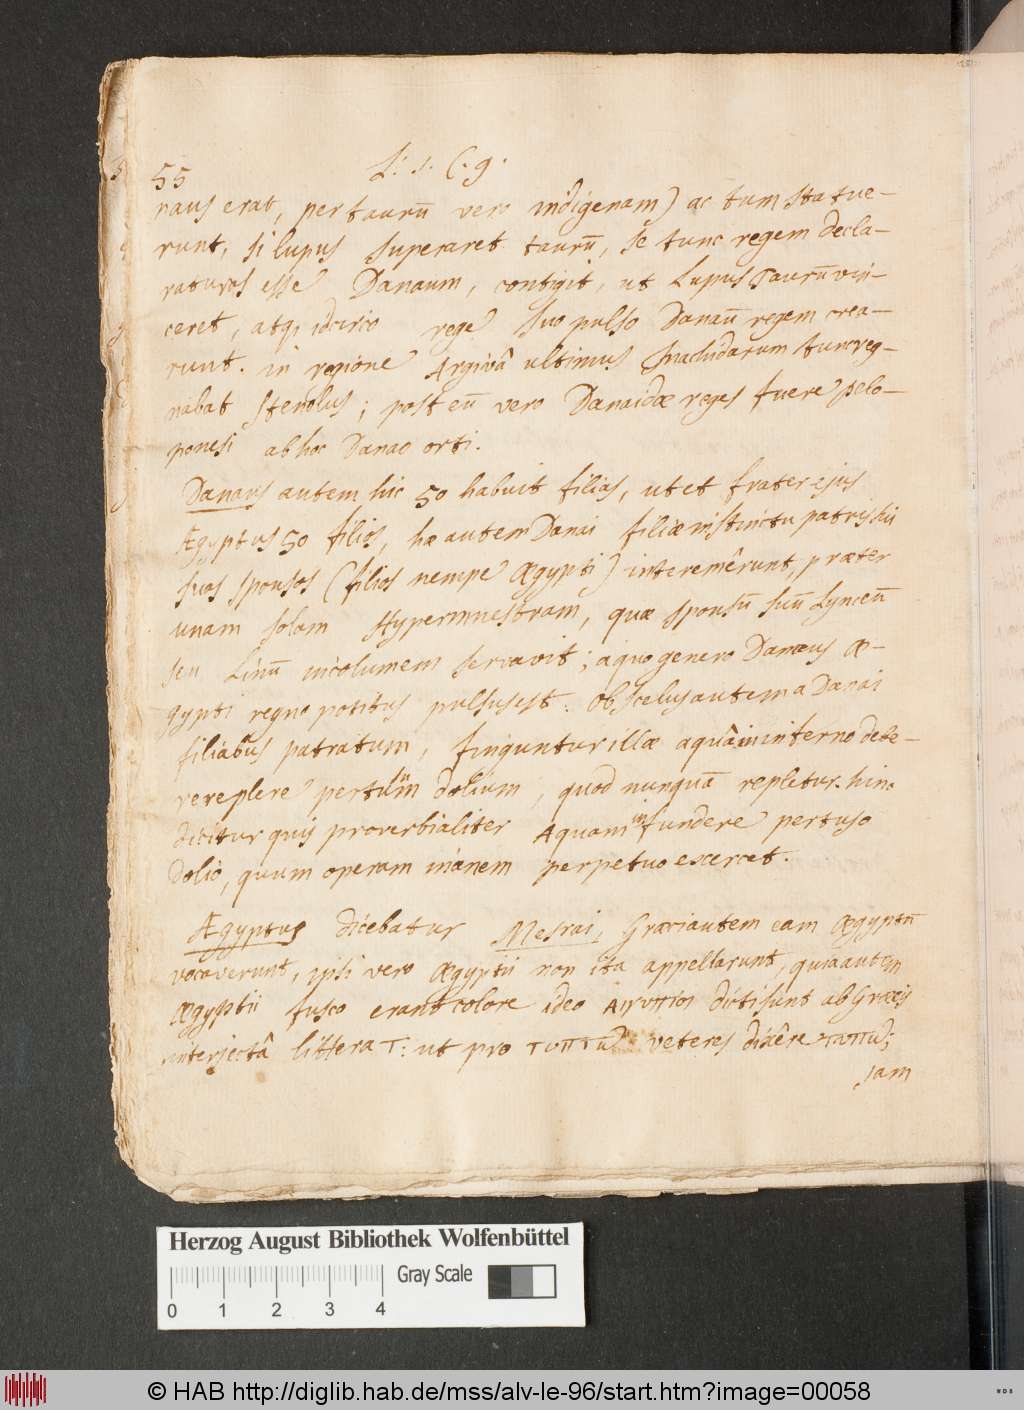 55 L. 1. C. 9.
naus erat, per taurū vero indigenam) ac tum statue-
runt, si lupus superaret taurū, se tunc regem decla-
raturos esse Danaum, contigit, ut Lupus Taurū vin-
ceret, atq; idcirco rege suo pulso Danaū regem crea-
runt. in regione Argivâ ultimus Inachidarum tunc reg-
nabat Stenolus; post eū vero Danaidæ reges fuere pelo-
ponesi ab hoc Danao orti.
Danaus autem hic 50 habuit filias, ut et frater ejus
Ægyptus 50 filios, hæ autem Danai filiæ instinctu patris sui
suos sponsos (filios nempe Ægypti) interemêrunt, præter
unam solam Hypermnestram, quæ sponsū suū Lynceū
seu Linū incolumem servavit; a quo genero Danaus Æ-
gypti regno potitus pulsus est. Ob scelus autem a Danai
filiabus patratum, finguntur illæ aquâ in inferno debe-
re replere pertusum dolium, quod nunquā repletur. hinc
dicitur quis proverbialiter Aquam in fundere pertuso
Dolio, quum operam inanem perpetuo escercet.
Ægyptus dicebatur Mesrai, Græci autem eam Ægyptū
vocaverunt, ipsi vero Ægyptii non ita appellarunt, quia autem
Ægyptii fusco erant colore ideo dicti sunt ab Græcis
interjectâ littera T: ut pro veteres dixêre
jam
Herzog August Bibliothek Wolfenbüttel
Gray Scale
0 1 2 3 4
© HAB http://diglib.hab.de/mss/alv-le-96/start.htm?image=00058